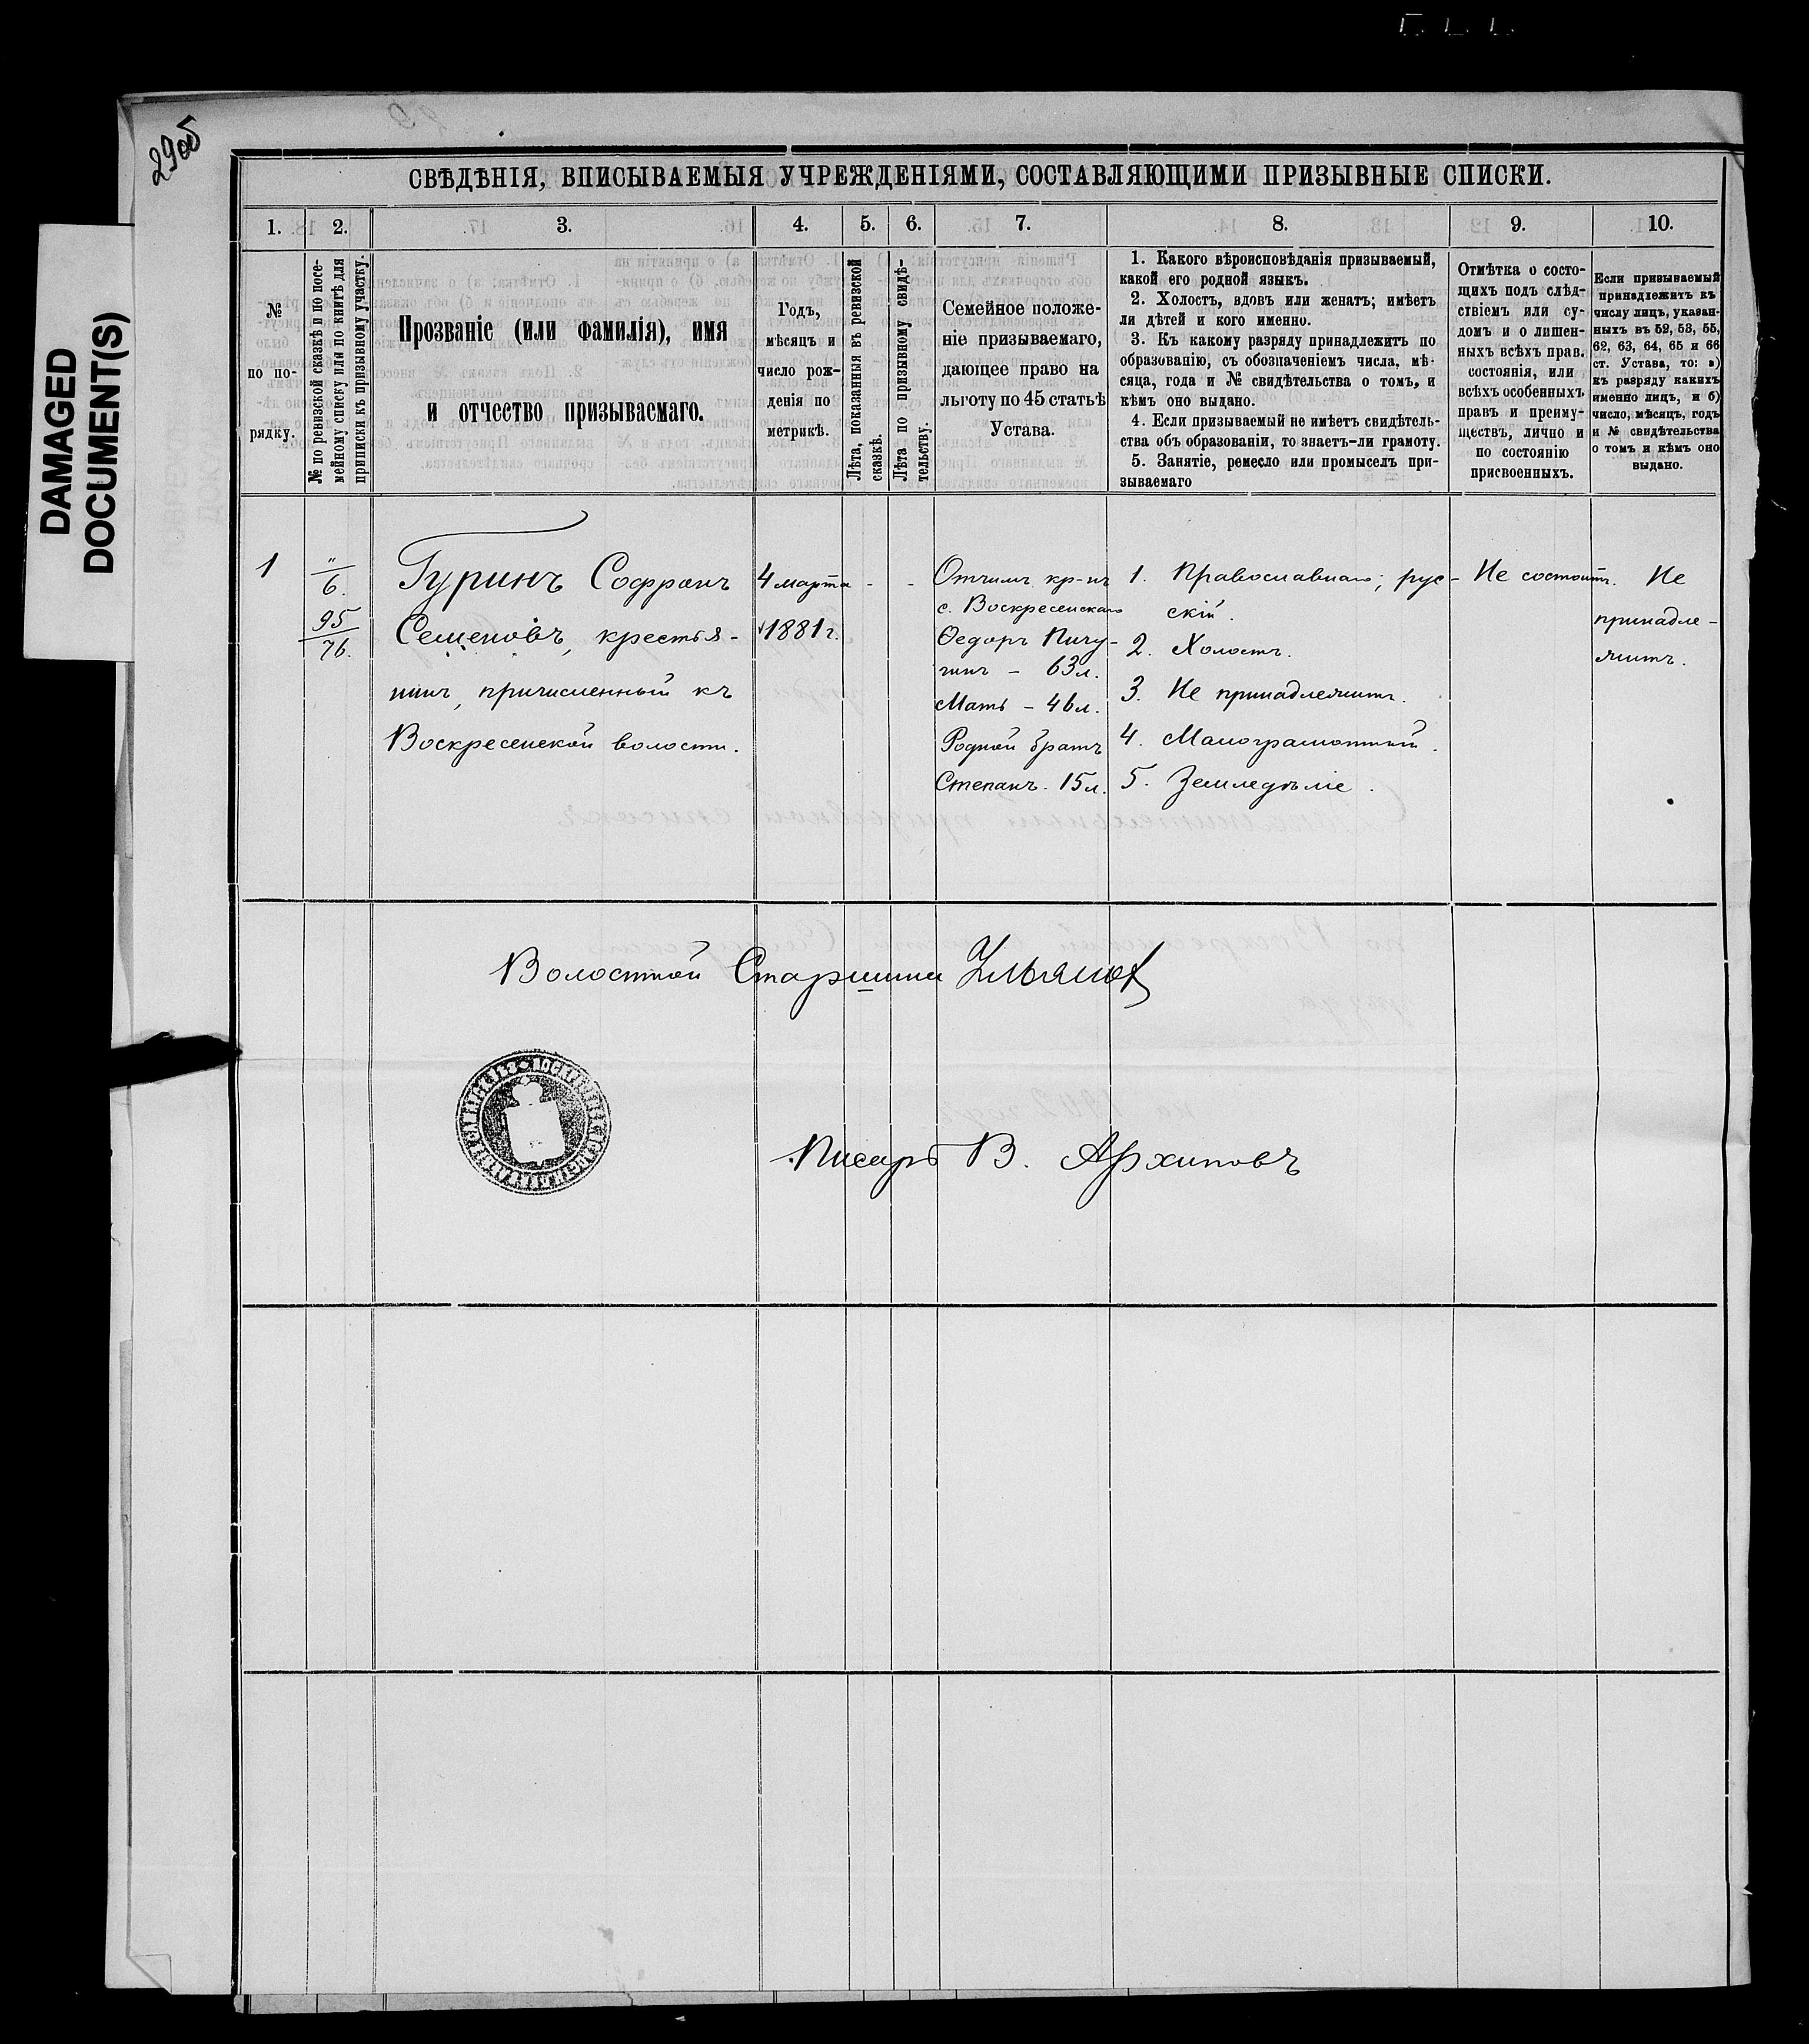 29об
DAMAGED
DOCUMENT(S)
СВѢДѢНІЯ, ВПИСЫВАЕМЫЯ УЧРЕЖДЕНІЯМИ, СОСТАВЛЯЮЩИМИ ПРИЗЫВНЫЕ СПИСКИ.
1. 2. 3. 4. 5. 6. 7. 8. 9. 10.
№
по по-
рядку.
№ по ревизской сказкѣ и по посе-
мейному списку или по книгѣ для
приписки къ призывному участку.
Прозваніе (или фамилія), имя
и отчество призываемаго.
Годъ,
мѣсяцъ и
число рож-
денія по
метрикѣ.
Лѣта, показанныя въ ревизской
сказкѣ.
Лѣта по призывному свидѣ-
тельству.
Семейное положе-
ніе призываемаго,
дающее право на
льготу по 45 статьѣ
Устава.
1. Какого вѣроисповѣданія призываемый,
какой его родной языкъ.
2. Холостъ, вдовъ или женатъ; имѣетъ
ли дѣтей и кого именно.
3. Къ какому разряду принадлежитъ по
образованію, съ обозначеніемъ числа, мѣ-
сяца, года и № свидѣтельства о томъ, и
кѣмъ оно выдано.
4. Если призываемый не имѣетъ свидѣтель-
ства объ образованіи, то знаетъ-ли грамоту.
5. Занятіе, ремесло или промыселъ при-
зываемаго
Отмѣтка о состо-
ящихъ подъ слѣд-
ствіемъ или су-
домъ и о лишен-
ныхъ всѣхъ прав.
состоянія, или
всѣхъ особенныхъ
правъ и преиму-
ществъ, лично и
по состоянію
присвоенныхъ.
Если призываемый
принадлежитъ къ
числу лицъ, указан-
ныхъ въ 52, 53, 55,
62, 63, 64, 65 и 66
ст. Устава, то: а)
къ разряду какихъ
именно лицъ, и б)
число, мѣсяцъ, годъ
и № свидѣтельства
о томъ и кѣмъ оно
выдано.
1
"
6.
95
76.
Гуринъ Софронъ
Семеновъ, крестья-
нинъ, причисленный къ
Воскресенской волости.
4 марта
1881 г.
-
-
Отчимъ кр-нъ
с. Воскресенскаго
Ѳедоръ Пичу-
гинъ - 63 л.
Мать - 46 л.
Родной братъ
Степанъ. 15 л.
1. Православнаго; рус-
скій.
2. Холостъ.
3. Не принадлежитъ.
4. Малограмотный.
5. Земледѣліе.
Не состоитъ.
Не
принадле-
житъ.
Волостной Старшина Ульянов
Писарь В. Архиповъ